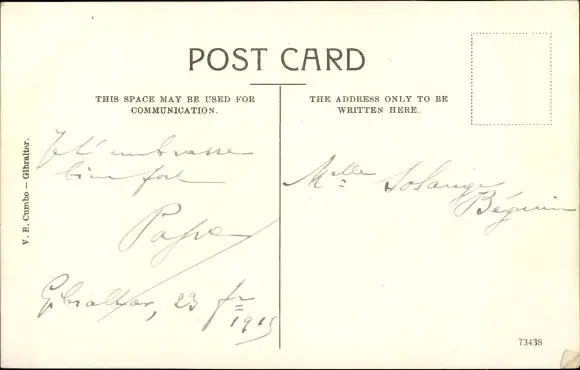 POST CARD
THIS SPACE MAY BE USED FOR
COMMUNICATION.
THE ADDRESS ONLY TO BE
WRITTEN HERE.
V. B. Cumbo — Gibraltar.
Je t'embrasse
bien fort
Papa
Gibraltar, 23 fr
1915
Melle Solange
Béguin
73438